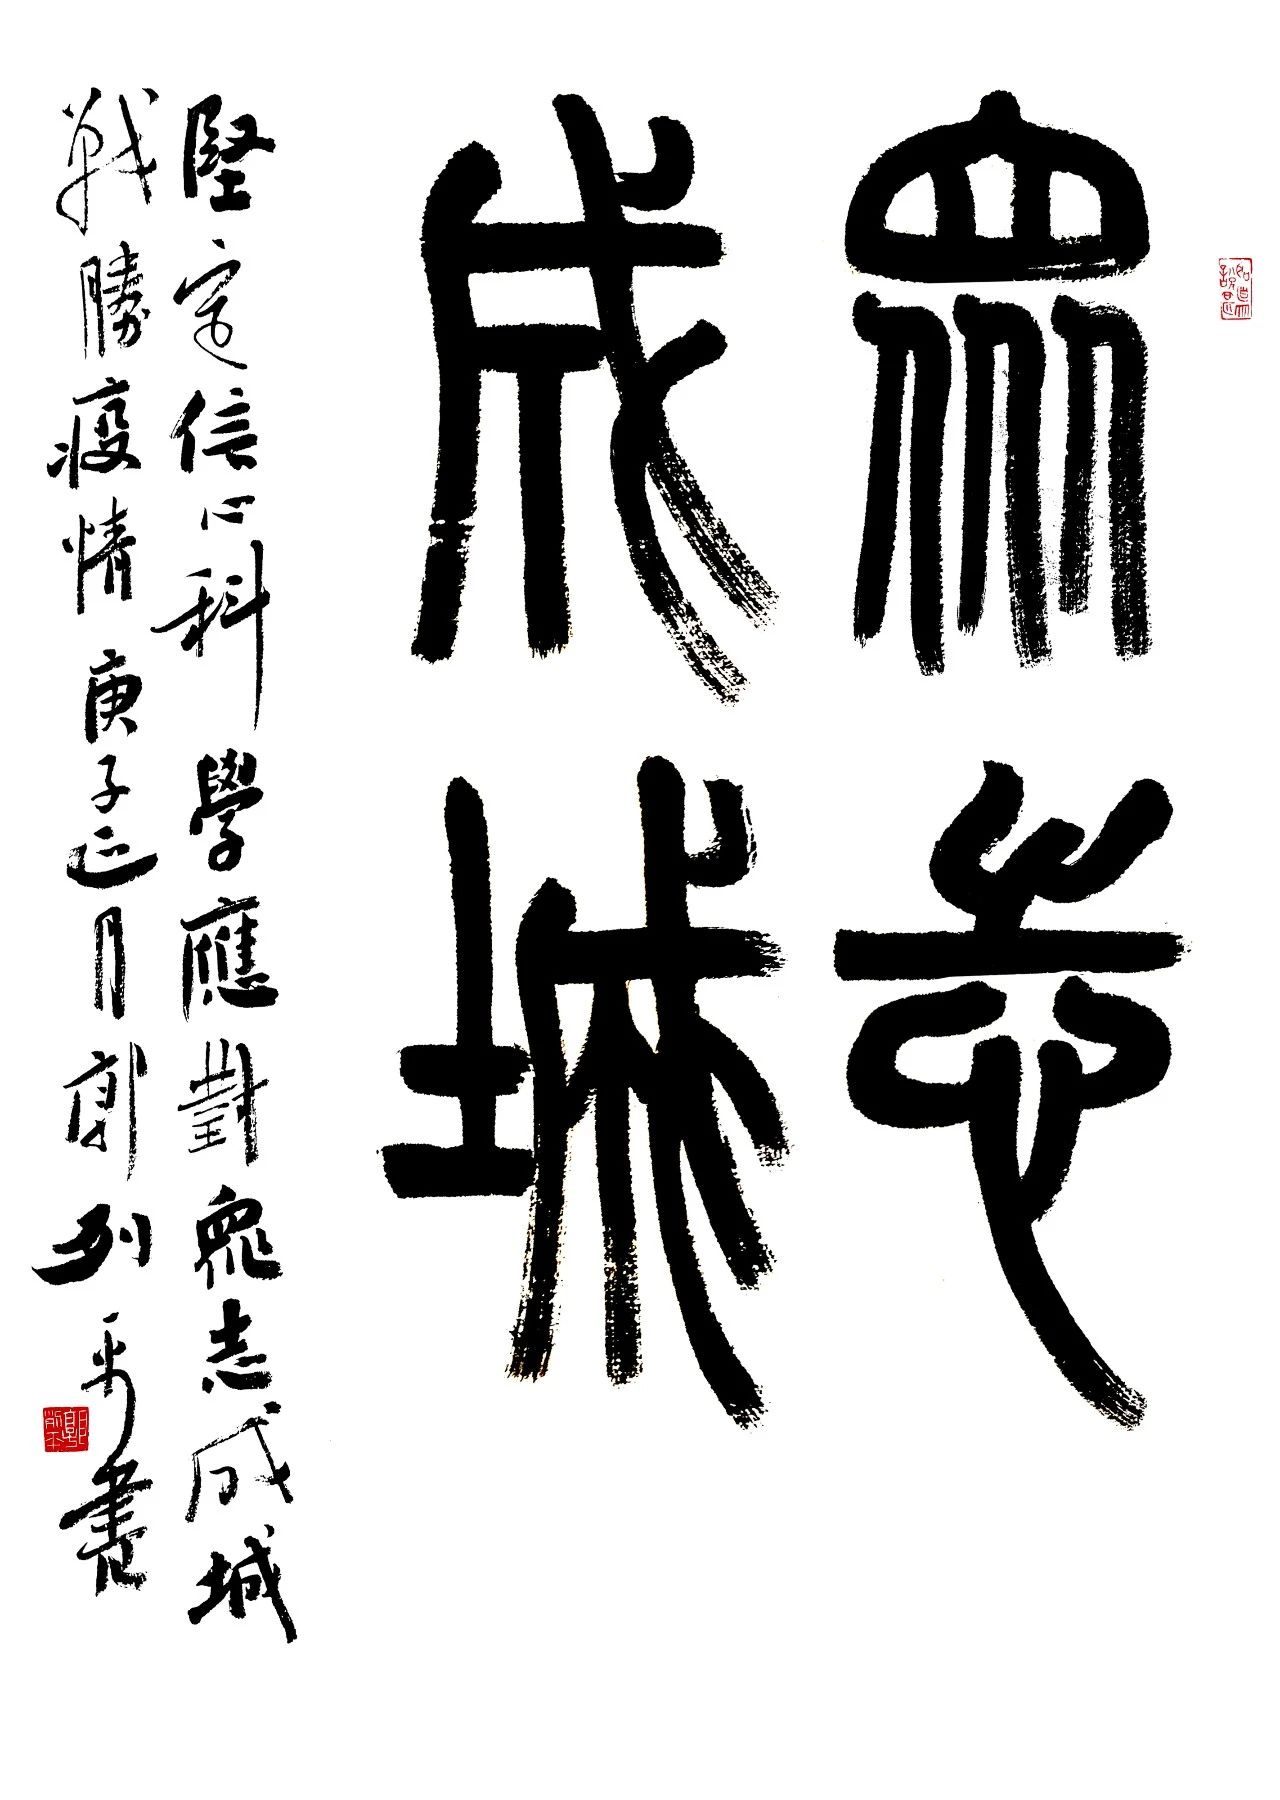 眾志
成城
堅定信心科學應對眾志成城
戰勝疫情庚子正月郭列平書